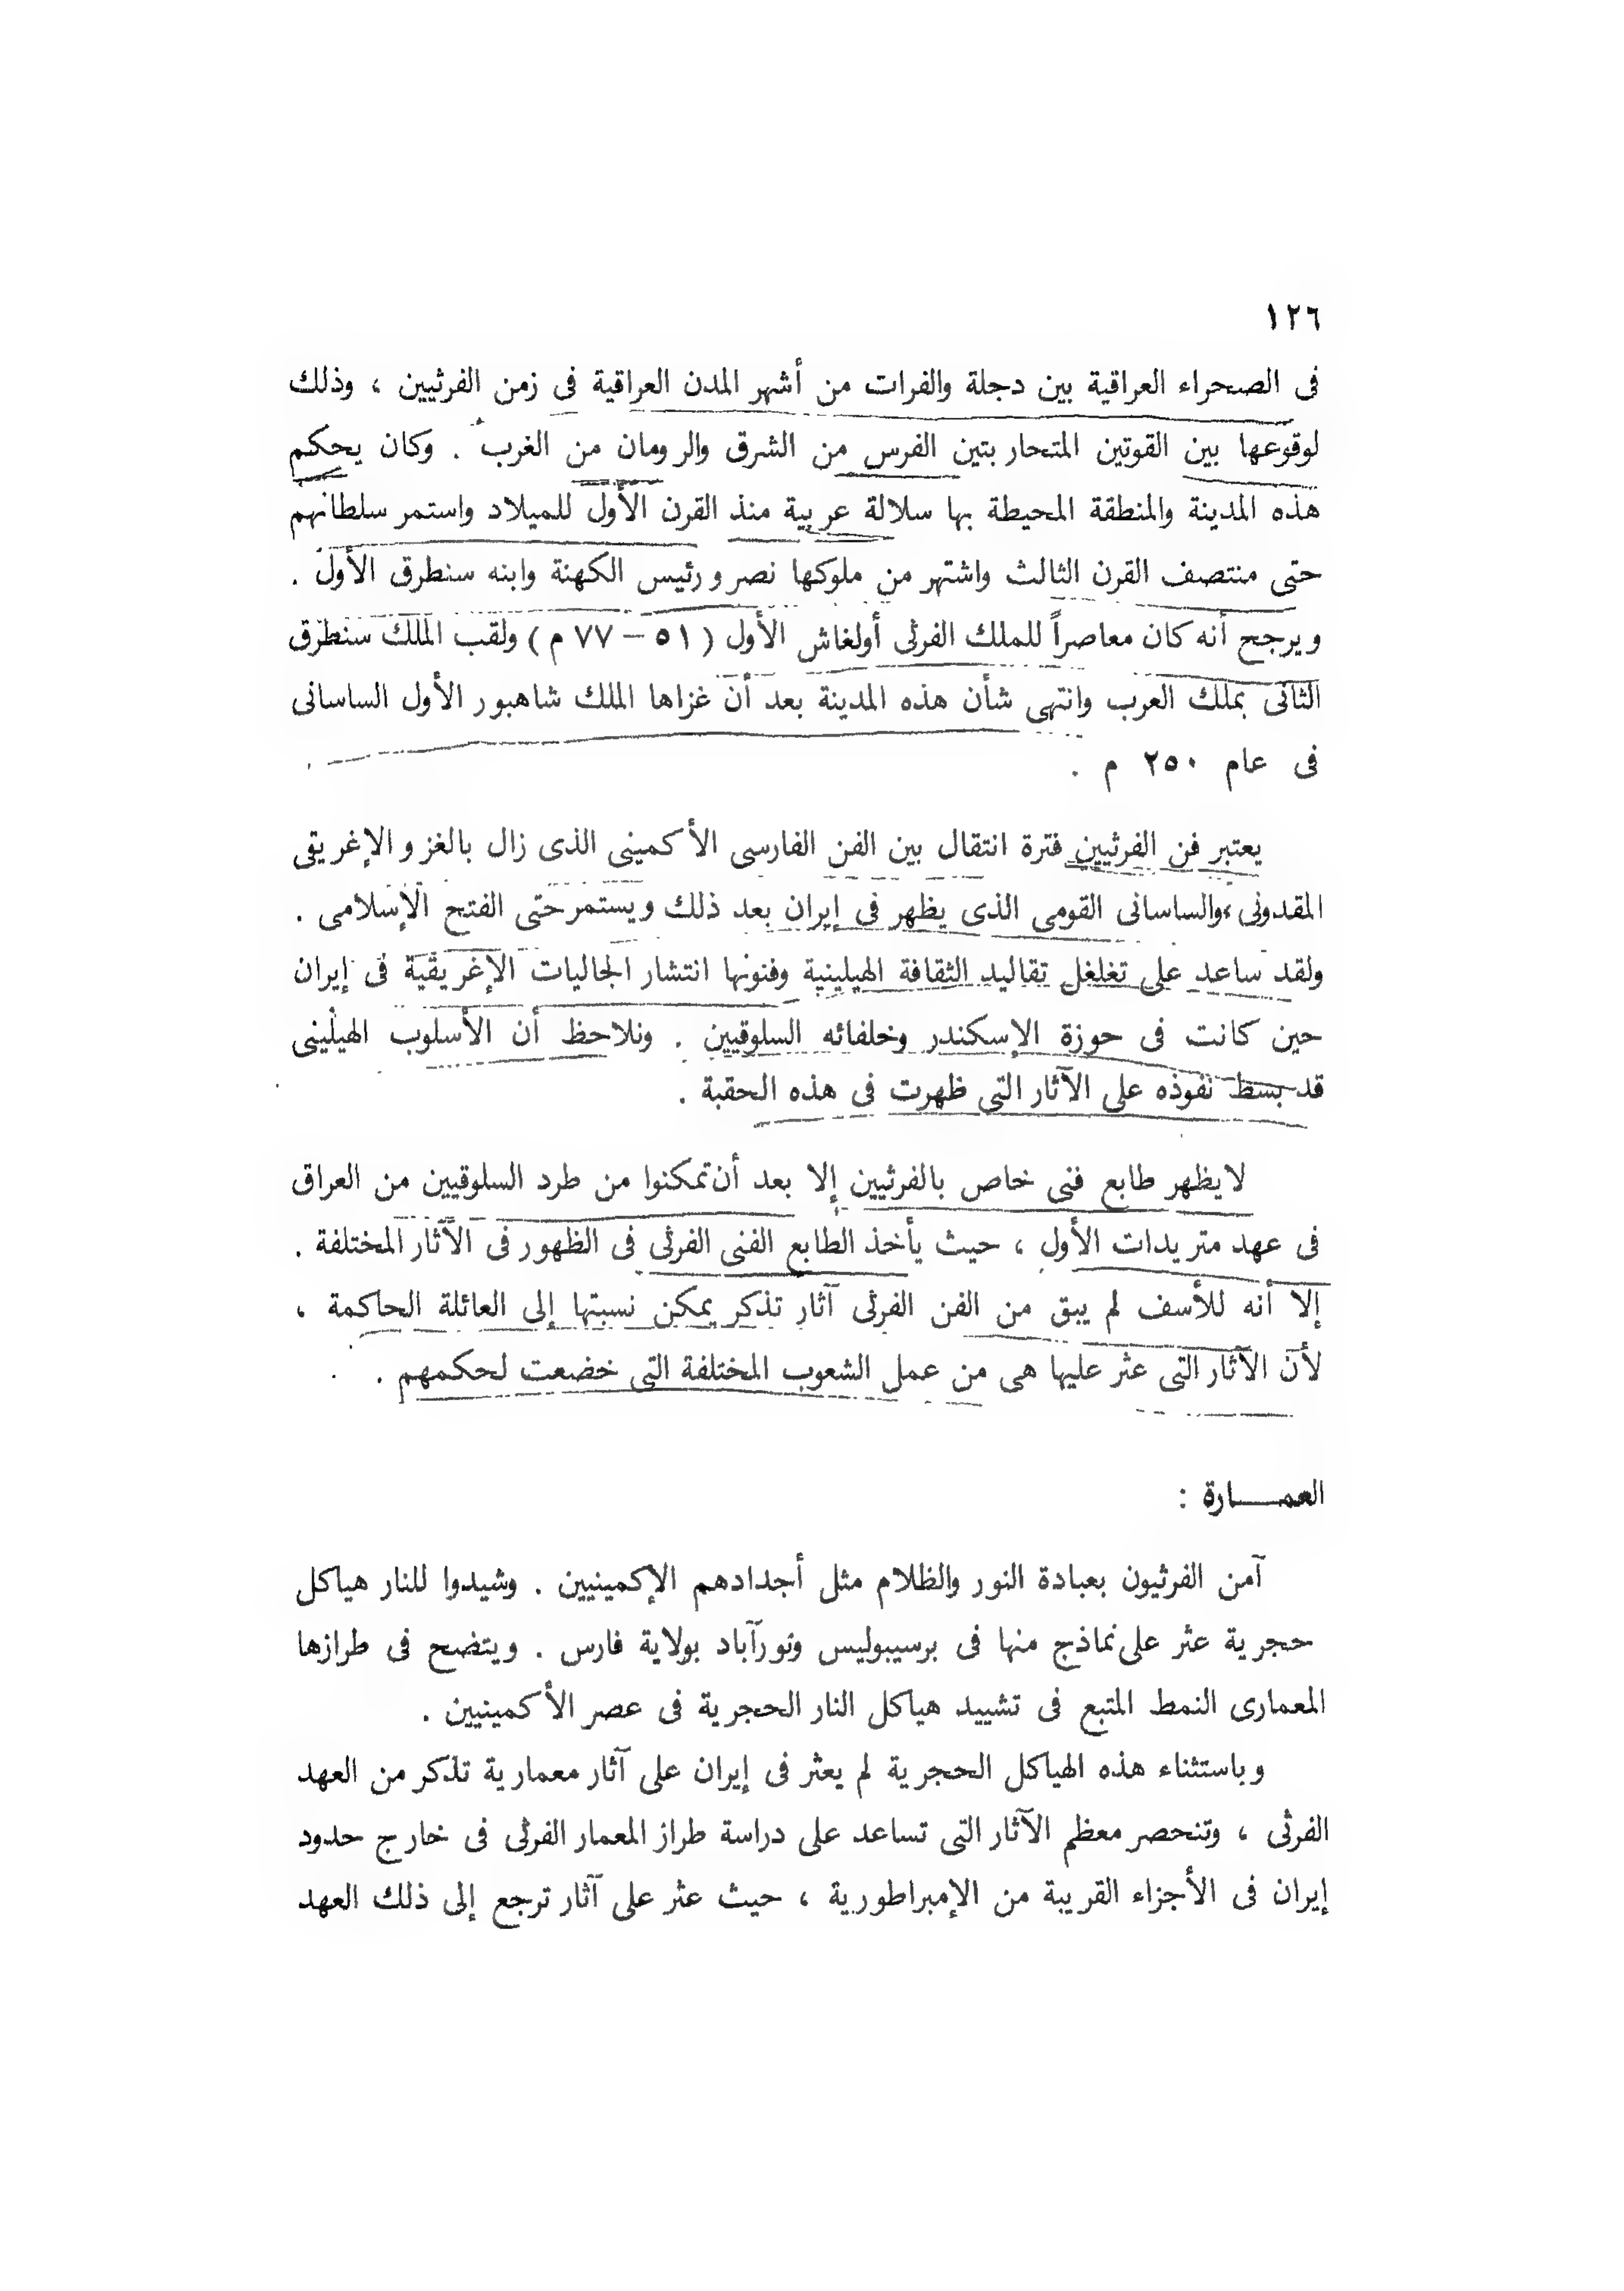 ١٢٦
فى الصحراء العراقية بين دجلة والفرات من أشهر المدن العراقية فى زمن الفرثيين ، وذلك
لوقوعها بين القوتين المتحاربتين الفرس من الشرق والرومان من الغرب . وكان يحكم
هذه المدينة والمنطقة المحيطة بها سلالة عربية منذ القرن الأول للميلاد واستمر سلطانهم
حتى منتصف القرن الثالث واشتهر من ملوكها نصرو رئيس الكهنة وابنه سنطرق الأول .
ويرجح أنه كان معاصراً للملك الفرثى أولغاش الأول ( ٥١ – ٧٧ م ) ولقب الملك سنطرق
الثانى بملك العرب وانتهى شأن هذه المدينة بعد أن غزاها الملك شاهبور الأول الساسانى
فى عام ٢٥٠ م .
يعتبر فن الفرثيين فترة انتقال بين الفن الفارسى الأكمينى الذى زال بالغزو الإغريقى
المقدونى ، والساسانى القومى الذى يظهر فى إيران بعد ذلك ويستمر حتى الفتح الإسلامى .
ولقد ساعد على تغلغل تقاليد الثقافة الهيلينية وفنونها انتشار الجاليات الإغريقية فى إيران
حين كانت فى حوزة الإسكندر وخلفائه السلوقيين . ونلاحظ أن الأسلوب الهيلينى
قد بسط نفوذه على الآثار التى ظهرت فى هذه الحقبة .
لا يظهر طابع فنى خاص بالفرثيين إلا بعد أن تمكنوا من طرد السلوقيين من العراق
فى عهد متريدات الأول ، حيث يأخذ الطابع الفنى الفرثى فى الظهور فى الآثار المختلفة .
إلا أنه للأسف لم يبق من الفن الفرثى آثار تذكر يمكن نسبتها إلى العائلة الحاكمة ،
لأن الآثار التى عثر عليها هى من عمل الشعوب المختلفة التى خضعت لحكمهم .
العمـــارة :
آمن الفرثيون بعبادة النور والظلام مثل أجدادهم الإكمينيين . وشيدوا للنار هياكل
حجرية عثر على نماذج منها فى برسيبوليس ونورآباد بولاية فارس . ويتضح فى طرازها
المعمارى النمط المتبع فى تشييد هياكل النار الحجرية فى عصر الأكمينيين .
وباستثناء هذه الهياكل الحجرية لم يعثر فى إيران على آثار معمارية تذكر من العهد
الفرثى ، وتنحصر معظم الآثار التى تساعد على دراسة طراز المعمار الفرثى فى خارج حدود
إيران فى الأجزاء القريبة من الإمبراطورية ، حيث عثر على آثار ترجع إلى ذلك العهد